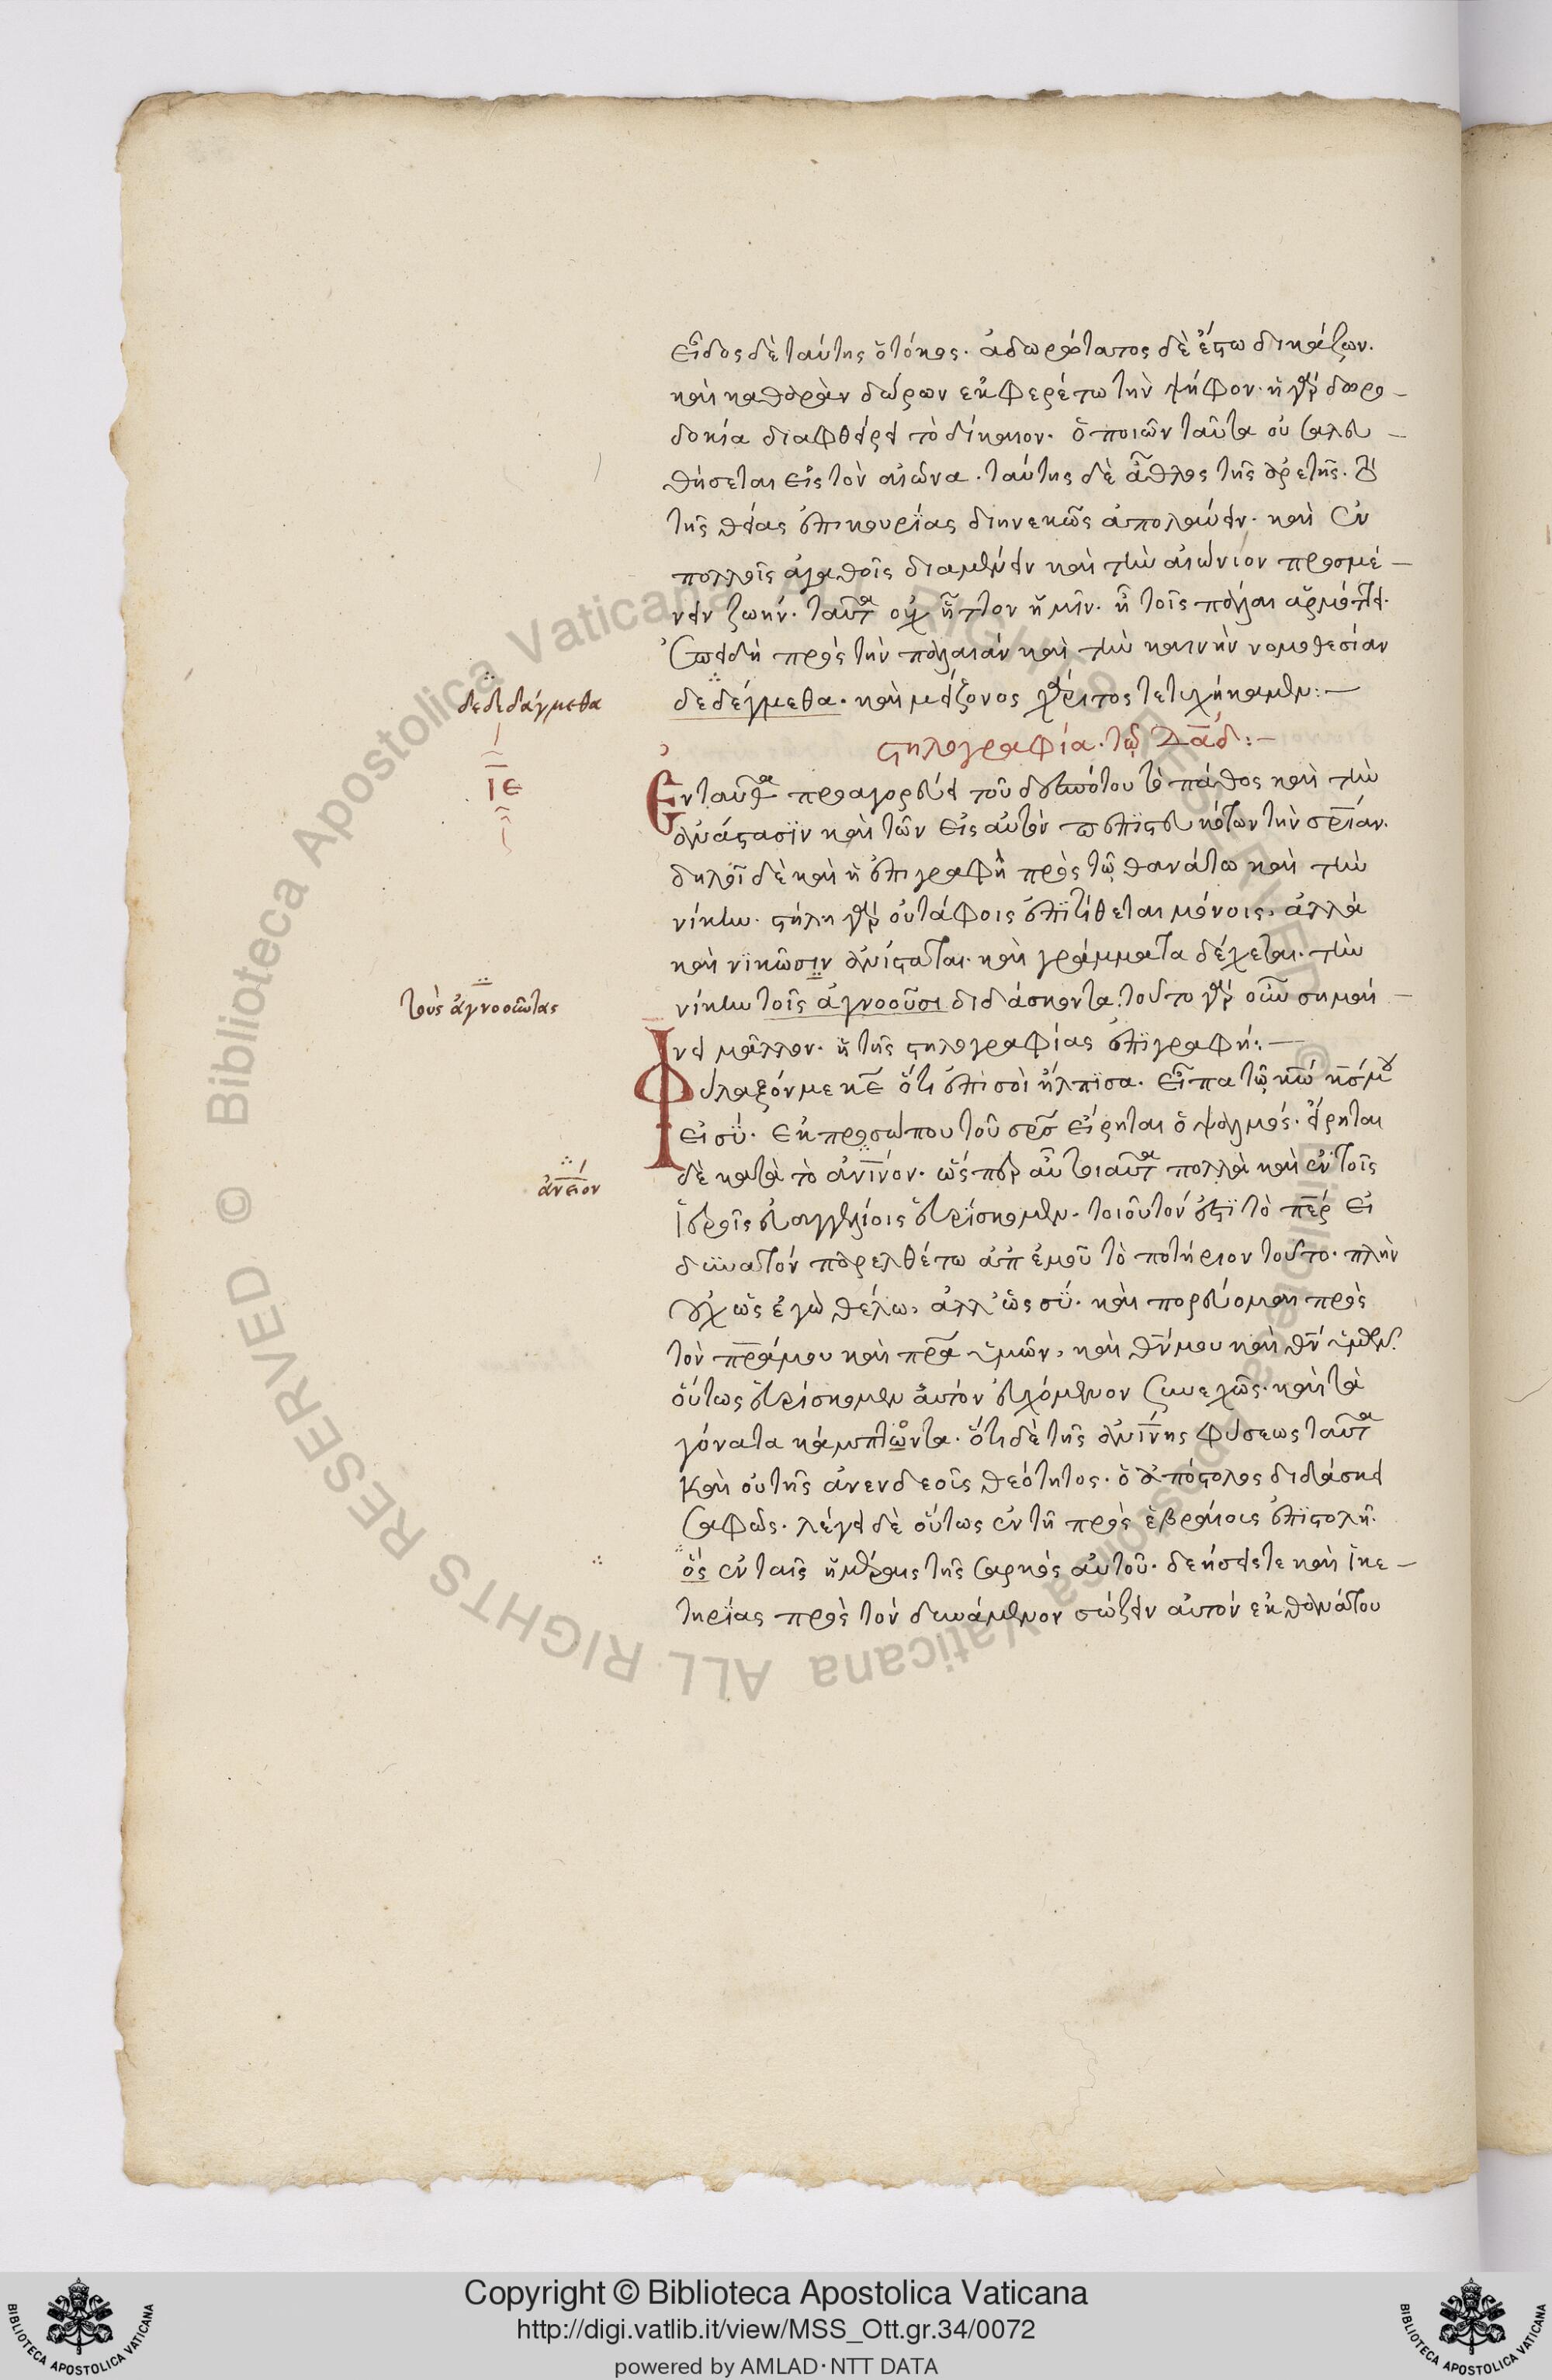 εἶδος δὲ ταύτης ὁ τόκος. ἀδωρότατος δὲ ἔστω δικάζων.
καὶ καθαρὰν δώρων ἐκφερέτω τὴν ψῆφον. ἡ γὰρ δωρο-
δοκία διαφθείρει τὸ δίκαιον. ὁ ποιῶν ταῦτα οὐ σαλευ-
θήσεται εἰς τὸν αἰῶνα. ταύτης δὲ ἆθλος τῆς ἀρετῆς. τὸ
τῆς θείας ἐπικουρΐας διηνεκῶς ἀπολαύειν. καὶ ἐν
πολλοῖς ἀγαθοῖς διαμένειν καὶ τὴν αἰώνιον προσμέ-
νειν ζωήν. ταῦτα οὐχ ἧττον ἡμῖν. ἢ τοῖς πάλαι ἁρμόττει.
ἐπειδὴ πρὸς τὴν παλαιὰν καὶ τὴν καινὴν νομοθεσίαν
δεδέγμεθα. καὶ μείζονος χάριτος τετυχήκαμεν:-
δεδιδάγμεθα
στηλογραφία. τῷ Δα̅δ:-
ΙΕ
Ἐνταῦθα προαγορεύει τοῦ δεσπότου τὸ πάθος καὶ τὴν
ἀνάστασϊν καὶ τῶν εἰς αὐτὸν πεπϊστευκότων τὴν σρ̅ίαν.
δηλοῖ δὲ καὶ ἡ ἐπιγραφὴ πρὸς τῷ θανάτω καὶ τὴν
νίκην. στήλη γὰρ οὐ τάφοις ἐπϊτίθεται μόνοις, ἀλλὰ
καὶ νϊκῶσιν ἀνίσταται. καὶ γράμματα δέχεται. τὴν
νίκην τοῖς ἀγνοοῦσι διδάσκοντα. τοῦτο γὰρ οὖν σημαί-
τοὺς ἀγνοοῦντας
νει μᾶλλον. ἡ τῆς στηλογραφίας ἐπϊγραφή:-
Φύλαξόν με κ̅ε ὅτι ἐπὶ σοὶ ἤλπϊσα. εἶπα τῷ κ̅ω κ̅ς μου
εἶ σύ. ἐκ προσώπου τοῦ σρ̅ς εἴρηται ὁ ψαλμός. εἴρηται
δὲ κατὰ τὸ ἀν̅ι̅νον. ὥσπερ αὖ τοιαῦτα πολλὰ καὶ ἐν τοῖς
ἀν̅ε̅ιον
ἱεροῖς εὐαγγελίοις εὑρΐσκομεν. τοιοῦτόν ἐστϊ τὸ π̅ερ εἰ
δυνατόν παρελθέτω ἀπ ἐμοῦ τὸ ποτήριον τοῦτο. πλὴν
οὐχ ὡς ἐγὼ θέλω, ἀλλ' ὡς σύ. καὶ πορεύομαι πρὸς
τὸν π̅ρα μου καὶ π̅ρα ὑμῶν, καὶ θ̅ν μου καὶ θ̅ν ὑμῶν.
οὕτως εὑρίσκομεν αὐτὸν εὐχόμενον συνεχῶς. καὶ τὰ
γόνατα κάμπτωντα. ὅτι δὲ τῆς ἀν̅ι̅νης φύσεως ταῦτα
καὶ οὐ τῆς ἀνενδεοῦς θεότητος. ὁ ἀπόστολος διδάσκει
σαφῶς. λέγει δὲ οὕτως ἐν τῇ πρὸς ἑβραίους ἐπϊστολῇ.
ὃς ἐν ταῖς ἡμέραις τῆς σαρκὸς αὐτοῦ. δεήσεις τε καὶ ἱκε-
τηρΐας πρὸς τὸν δυνάμενον σώζειν αὐτὸν ἐκ θανάτου
Copyright © Biblioteca Apostolica Vaticana
http://digi.vatlib.it/view/MSS_Ott.gr.34/0072
powered by AMLAD·NTT DATA